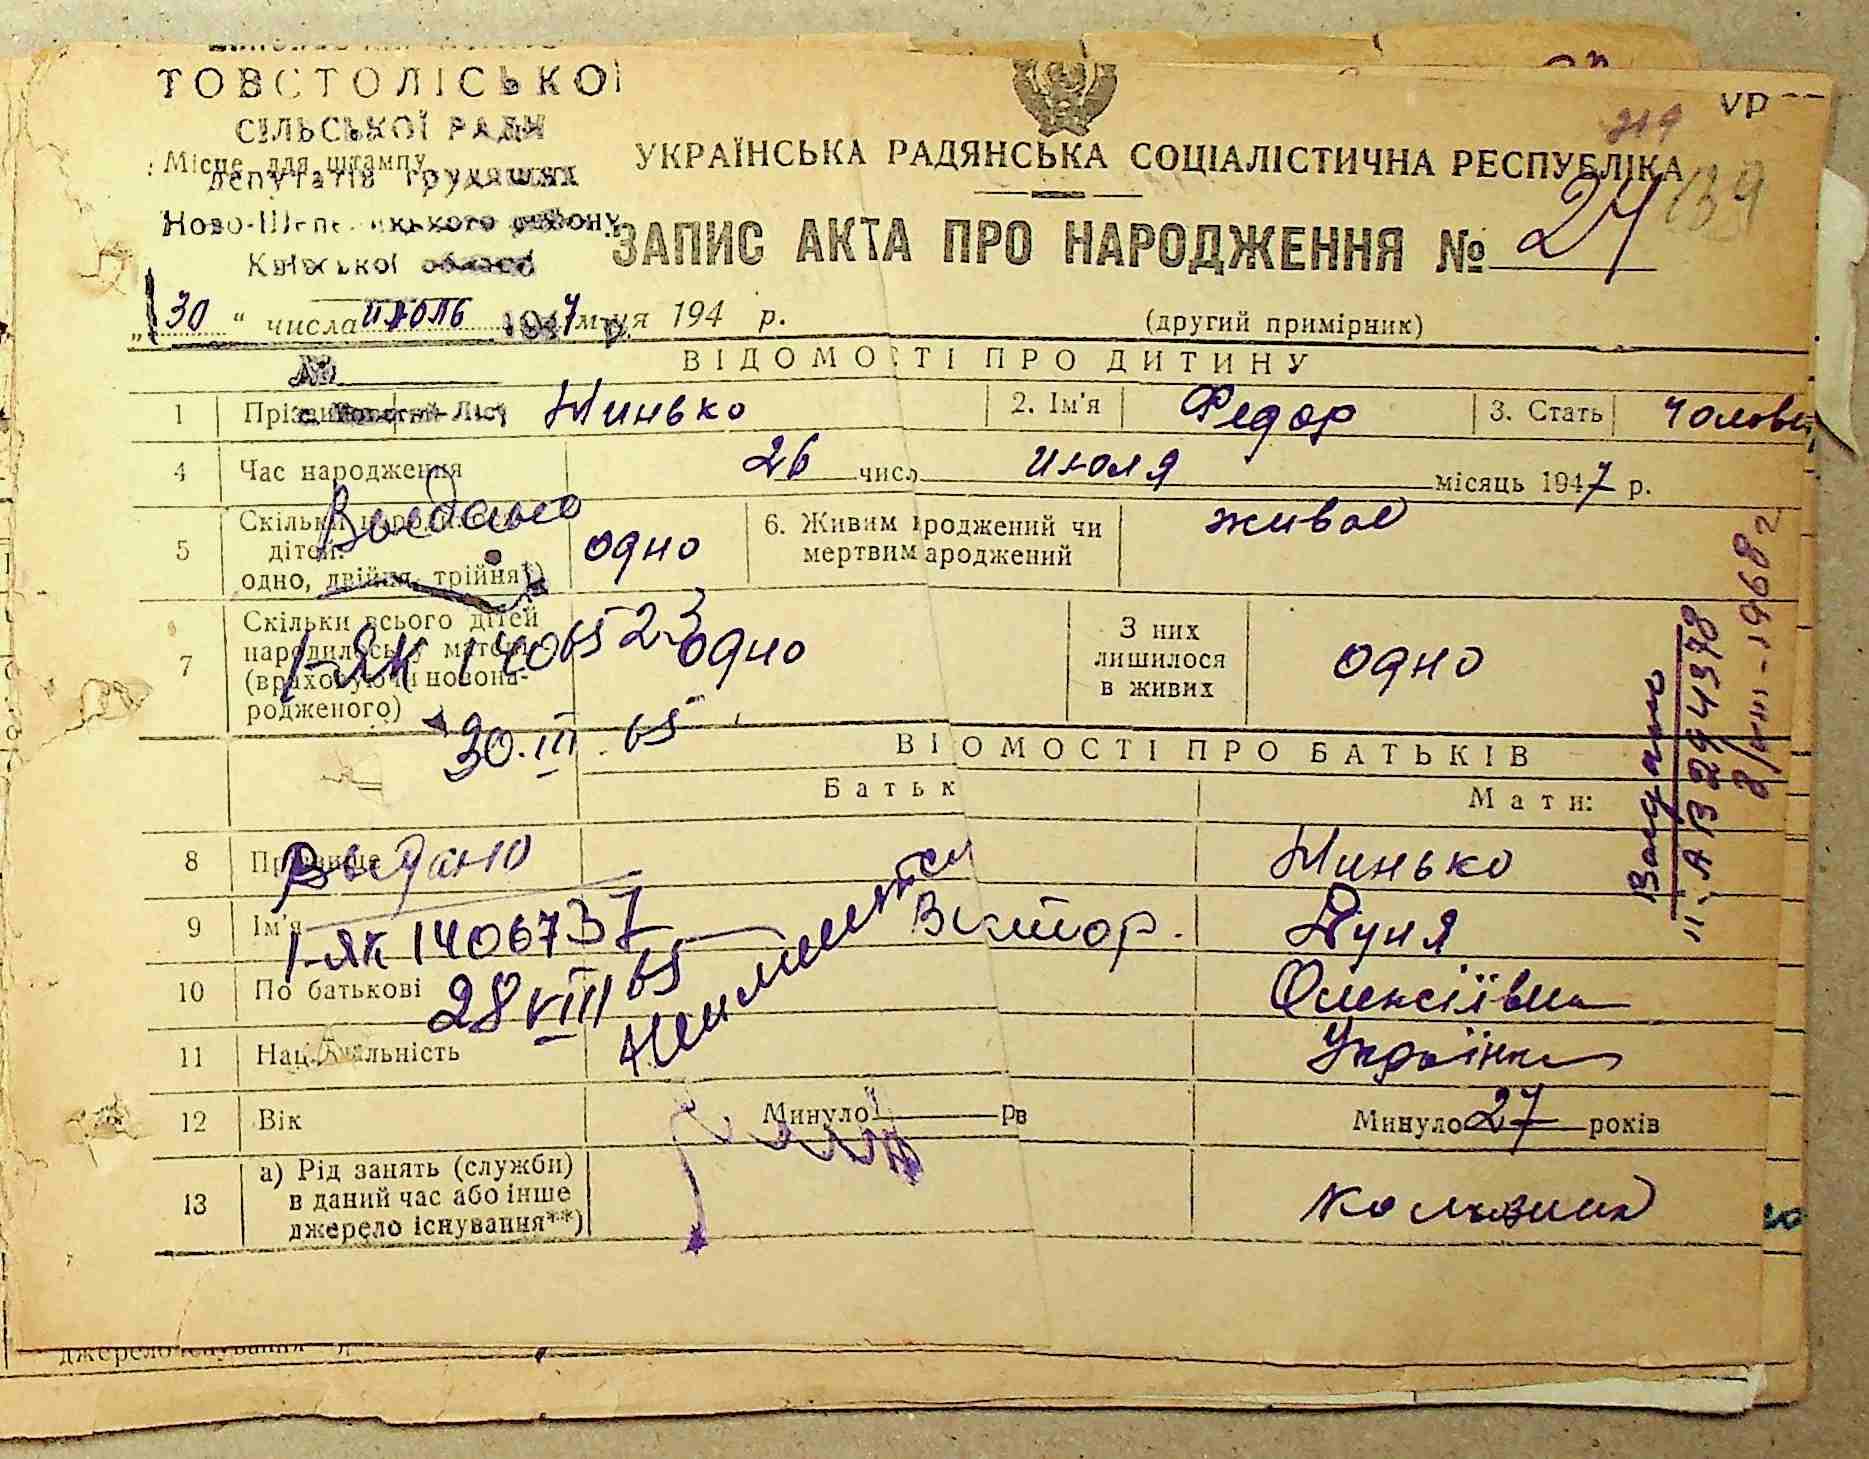 ТОВСТОЛІСЬКОЇ
СІЛЬСЬКОЇ РАДИ
Місце для штампу
депутатів трудящих
Київської області
УКРАЇНСЬКА РАДЯНСЬКА СОЦІАЛІСТИЧНА РЕСПУБЛІКА
219
139
ЗАПИС АКТА ПРО НАРОДЖЕННЯ № 24
„30“ числа июль 1947 194 р.
(другий примірник)
ВІДОМОСТІ ПРО ДИТИНУ
№
1 Минько 2. Ім'я Федор 3. Стать
4 Час народження 26 июля місяць 1947 р.
5 Скільки дітей: одно, двійня, трійня*) одно 6. Живим народжений чи мертвим народжений живое
Выдано
7 Скільки всього дітей народилось у матері (враховуючи новонародженого) одно З них лишилося в живих одно
I-ЯК 1406523
30.III.65
ВІДОМОСТІ ПРО БАТЬКІВ
Батьк Мати:
8 Прізвище Минько
Выдано
9 Ім'я Виктор. Дуня
I-ЯК 1406737
10 По батькові Олексіївна
28 VIII 65
11 Національність Українка
12 Вік Минуло рв Минуло 27 років
13 а) Рід занять (служби) в даний час або інше джерело існування**)
Выдано
II-АВ 294378
2/VIII-1968 г
джерело існування